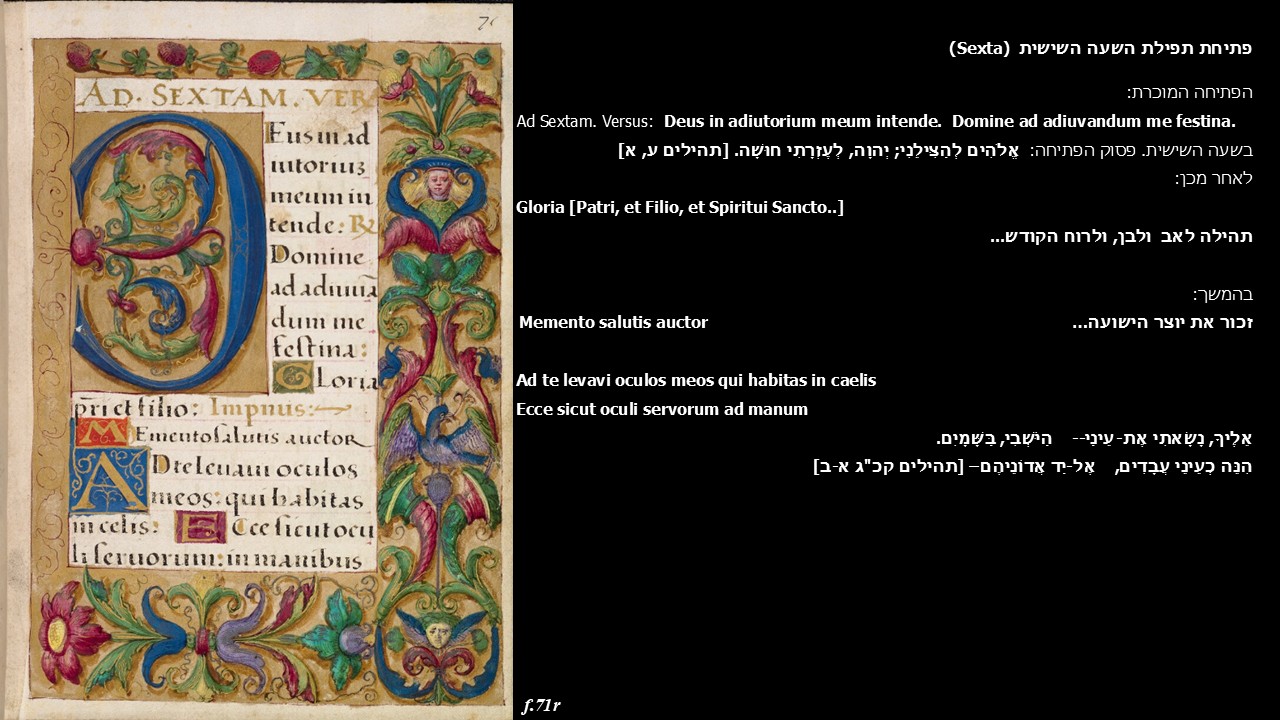 7
AD. SEXTAM. VER
DEus in ad
iutoriuz
meum in
tende: R
Domine
ad adiuuā
dum me
festina:
Gloria
pri et filio: Impnus:
Memento salutis auctor
AD te leuaui oculos
meos: qui habitas
in celis: Ecce sicut ocu
li seruorum: in manibus
פתיחת תפילת השעה השישית (Sexta)
הפתיחה המוכרת:
Ad Sextam. Versus: Deus in adiutorium meum intende. Domine ad adiuvandum me festina.
בשעה השישית. פסוק הפתיחה: אֱלֹהִים לְהַצִּילֵנִי; יְהוָה, לְעֶזְרָתִי חוּשָׁה. [תהילים ע, א]
לאחר מכן:
Gloria [Patri, et Filio, et Spiritui Sancto..]
תהילה לאב ולבן, ולרוח הקודש...
בהמשך:
Memento salutis auctor זכור את יוצר הישועה...
Ad te levavi oculos meos qui habitas in caelis
Ecce sicut oculi servorum ad manum
אֵלֶיךָ, נָשָׂאתִי אֶת-עֵינַי-- הַיֹּשְׁבִי, בַּשָּׁמָיִם.
הִנֵּה כְעֵינֵי עֲבָדִים, אֶל-יַד אֲדוֹנֵיהֶם– [תהילים קכ"ג א-ב]
f.71r